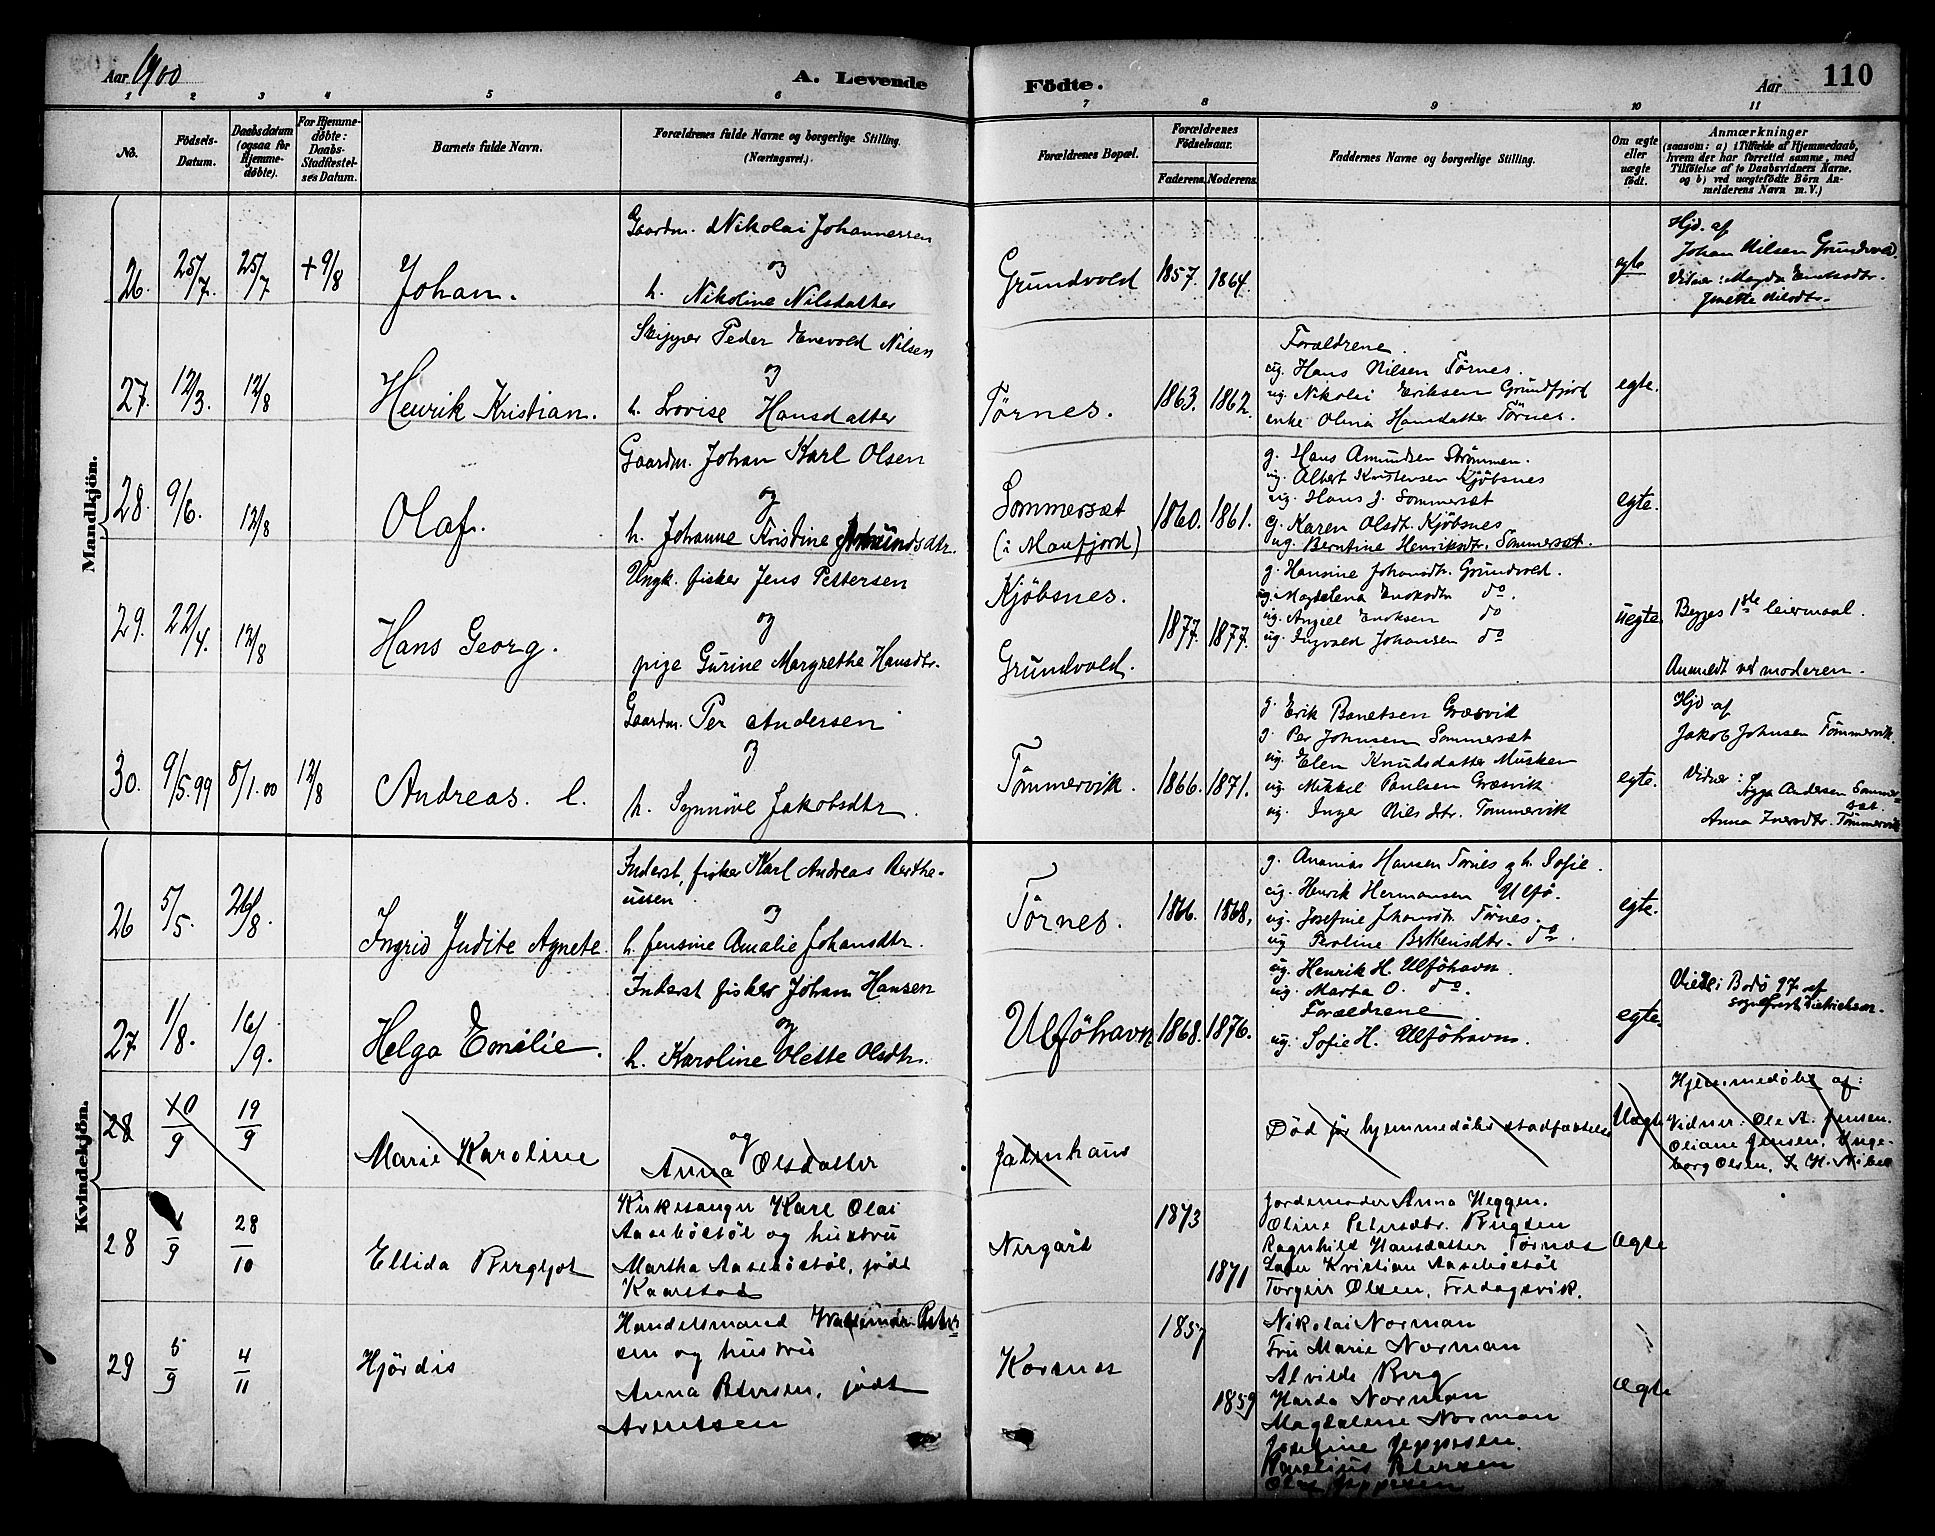 Aar 1900
A. Levende
Födte.
Aar
110
1 2 3 4 5 6 7 8 9 10 11
No.
Födsels-
Datum.
Daabsdatum
(ogsaa for
Hjemme-
døbte).
For Hjemme-
döbte:
Daabs-
Stadfæstel-
ses Datum.
Barnets fulde Navn.
Forældrenes fulde Navne og borgerlige Stilling.
(Næringsvei.)
Forældrenes Bopæl.
Forældrenes
Fødselsaar.
Faderens. Moderens.
Faddernes Navne og borgerlige Stilling.
Om ægte
eller
uægte
født.
Anmærkninger
(saasom: a) i Tilfælde af Hjemmedaab,
hvem der har forrettet samme, med
Tilföielse af to Daabsvidners Navne,
og b) ved uægtefødte Börn An-
melderens Navn m. V.)
Mandkjön.
26. 25/7. 25/7 + 9/8
Johan.
Gaardm. Nikolai Johannessen
og
h. Nikoline Nilsdatter
Grundvold 1857. 1864.
egte
Hjd. af
Johan Nilsen Grundvold.
Vidner: Magda Enoksdtr.
Jenette Nilsdtr.
27. 12/3. 12/8
Henrik Kristian.
Skipper Peder Enevold Nilsen
og
h. Lovise Hansdatter
Törnes. 1863. 1862.
Forældrene.
ug. Hans Nilsen Törnes.
ug. Nikolai Eriksen Grundfjord
enke Olina Hansdatter Törnes.
egte.
28. 9/6. 12/8
Olaf.
Gaardm. Johan Karl Olsen
og
h. Johanne Kristine Amundsdtr.
Sommersæt
(i Manfjord)
1860. 1861.
g. Hans Amundsen Strömmen.
ug. Albert Kristensen Kjöbsnes
ug. Hans J. Sommersæt
g. Karen Olsdtr. Kjöbsnes
ug. Berntine Henriksdtr. Sommersæt.
egte.
29. 22/4. 12/8
Hans Georg.
Ungk. fisker Jens Pettersen
og
pige Gurine Margrethe Hansdtr.
Kjöbsnes.
Grundvold.
1877. 1877.
g. Hansine Johansdtr. Grundvold.
ug. Magdalena Enoksdtr do.
ug. Angiel Enoksen do
ug. Ingvald Johansen do
uegte.
Begges 1ste leiermaal.
Anmeldt ved moderen.
30. 9/5.99 8/1.00 12/8
Andreas. l.
Gaardm. Per Andersen
og
h. Synnöve Jakobsdtr.
Tömmervik. 1866. 1871.
g. Erik Banetsen Græsvik
g. Per Johnsen Sommersæt
ug. Elen Knudsdatter Musken
ug. Mikkel Paulsen Græsvik
ug. Inger Nilsdtr. Tömmervik
egte.
Hjd. af
Jakob Johnsen Tömmervik.
Vidner:
Sygg Andersen Sommer-
sæt.
Anna Iversdtr. Tömmervik
Kvindekjön.
26 5/5. 26/8.
Ingrid Judite Agnete.
Inderst, fisker Karl Andreas Berthe-
ussen
og
h. Jensine Amalie Johansdtr.
Törnes. 1866. 1868.
g. Ananias Hansen Törnes g h. Sofie.
ug. Henrik Hermansen Ulfö.
ug. Josefine Johansdtr. Törnes.
ug. Peroline Bertheusdtr. do.
egte.
27. 1/8. 16/9.
Helga Emilie.
Inderst fisker Johan Hansen
og
h. Karoline Olette Olsdtr.
Ulföhavn 1868. 1876.
ug. Henrik H. Ulföhavn.
ug. Marta O. do.
Forældrene
ug. Sofie H. Ulföhavn.
egte.
Viede i Bodö 97 af
sogneprest Dietrichson.
28 10/9 19/9
Marie Karoline
og
Anna Olsdatter
Jakinhaus
Död för hjemmedöbes stadfæstelse
Uægte
Hjemmedöbt af:
Vidner: Ole A. Jensen.
Oliane Jensen, Inge-
borg Olsen.
28 /9 28/10
Ellida Bergljot
Kirkesanger Karl Olai
Aaseböstöl og hustru
Martha Aaseböstöl, född
Kaarstad
Nergård 1873
1871
Jordemoder Anna Heggen.
Oline Petersdtr. Bugsen
Ragnhild Hansdatter Törnes
Lars Kristian Aaseböstöl
Torgeir Olsen, Fredagsvik.
ægte
29 5/9 4/11
Hjördis
Handelsmand Waldemar Peter-
sen og hustru
Anna Petersen, född
Arentssen
Korsnes 1857
1859
Nikolai Norman
Fru Marie Norman
Alvilde Berg
Harda Norman
Magdalene Norman
Josefine Jeppesen.
Kornelius Petersen
Olaf Jeppesen
ægte